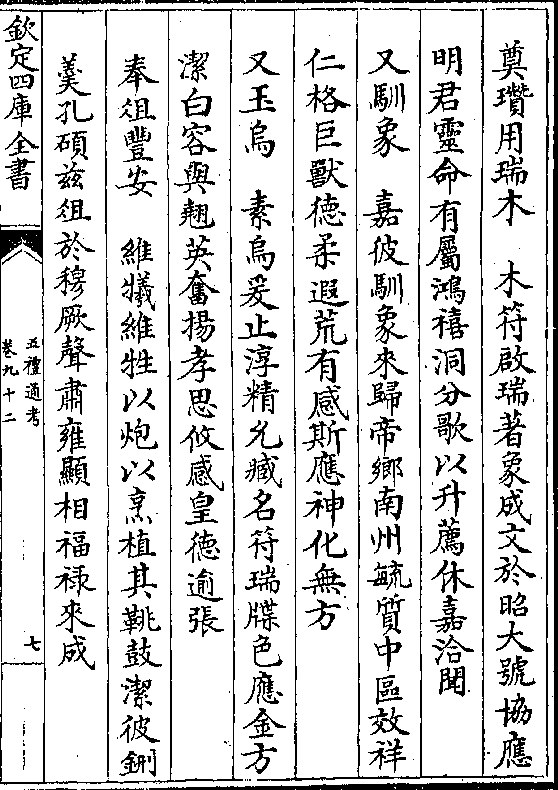 奠瓚用瑞木　木符啟瑞著象成文於昭大號協應
明君靈命有屬鴻禧洞分歌以升薦休嘉洽聞
又馴象　嘉彼馴象來歸帝鄉南州毓質中區效祥
仁格巨獸德柔遐荒有感斯應神化無方
又玉烏　素烏爰止淳精允臧名符瑞牒色應金方
潔白容與翹英奮揚孝思攸感皇德逾張
奉俎豐安　維犧維牲以炮以烹植其鞉鼓潔彼鉶
羹孔碩兹俎於穆厥聲肅雍顯相福祿來成
欽定四庫全書
五禮通考
卷九十二
七